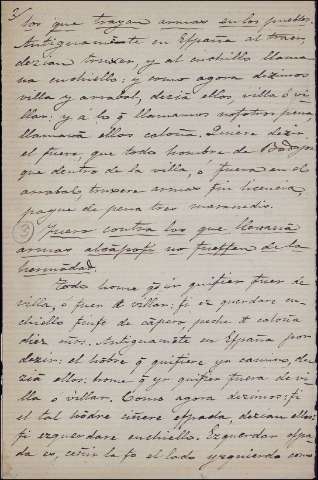 3/
los que trayan armas en los pueblos.
Antiguamẽte en España al traer,
dezian truxer, y al cuchillo llama
ua cuchiello: y como agora dezimos
villa y arrabal, dezia ellos, villa ó vi
llar: y á lo q̃ llamamos nosotros pena
llamauã ellos caloña. Quiere dezir
el fuero, que todo hombre de Badajoz
que dentro de la villa, ó fuera en el
arrabal, truxere armas sin licencia,
pague de pena tres marauedis.
(3) Fuero contra los que lleuauã
armas no fuessen de la
hermãdad.
Todo home q̃ quisier fuer de
villa, ó fuer de villar: si ezquerdare cu
chiello sinse de capero, peche de caloña
diez mrs. Antiguamẽte en España por
dezir: el hõbre q̃ quisiere yr camino, de
ziã ellos: home q̃ yr quisier fuera de vi
lla ó villar. Como agora dezimos: si
el tal hõbre ciñere espada, dezian ellos:
si ezquerdare cuchiello. Ezquerdar espa
da es, ceñirla a el lado yzquierdo como